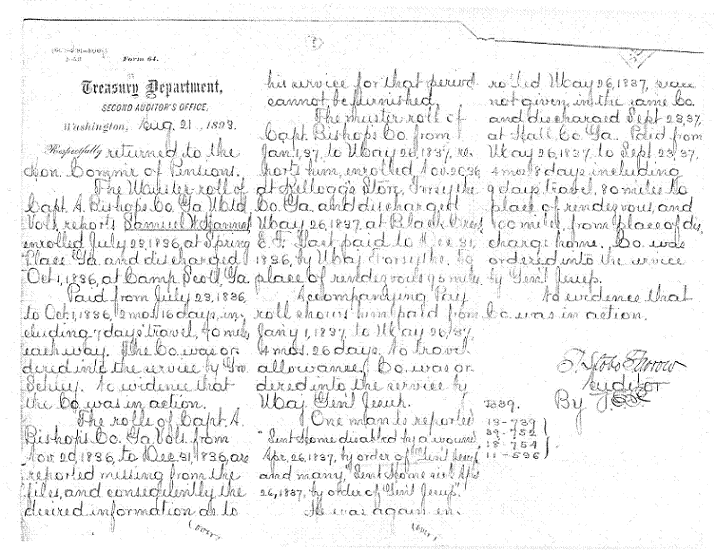 Form 64.
Treasury Department,
SECOND AUDITOR'S OFFICE,
Washington, Aug. 21, 1893.
Respectfully returned to the
Hon. Commr. of Pensions.
The Muster roll of
Capt. A. Bishops Co. Ga. Vols.
reports Samuel
enrolled July 23, 1836, at Spring
Place Ga. and discharged
Oct. 1, 1836, at Camp Scott, Ga.
Paid from July 23, 1836
to Oct. 1, 1836, 2 mos. 16 days, in-
cluding 7 days travel, 70 miles
each way. The Co. was or-
dered into the service by Gov.
Schley. No evidence that
the Co. was in action.
The rolls of Capt. A.
Bishop's Co. Ga. Vols. from
Nov. 20, 1836, to Dec. 31, 1836, are
reported missing from the
files, and consequently the
desired information as to
(over)
his service for that period
cannot be furnished.
The muster roll of
Capt. Bishops Co. from
Jan. 1, 37 to May 26, 1837, re-
ports him, enrolled Nov. 20, 36,
at Kellogg's Store, Forsythe
Co. Ga. and discharged
May 26, 1837, at Black Creek
E. F. Last paid to Dec. 31,
1836, by Maj. Forsythe. To
place of rendezvous 95 miles.
Accompanying Pay
roll shows him paid from
Jany. 1, 1837 to May 26, 37
4 mos. 26 days, no travel
allowance. Co. was or-
dered into the service by
Maj. Gen'l Jesup.
One man is reported
"Sent Home disabled by a wound
Apr. 26, 1837, by order of Gen'l Jesup
and many, "Sent Home sick Apr.
26, 1837, by order of Gen'l Jesup".
He was again en-
(over)
rolled May 26, 1837, where
not given, in the same Co.
and discharged Sept. 23, 37,
at Hall Co. Ga. Paid from
May 26, 1837, to Sept. 23, 37,
4 mos. 8 days including
9 days travel, 80 miles to
place of rendezvous, and
100 miles, from place of dis-
charge home. Co. was
ordered into the service
by Gen'l Jesup.
No evidence that
Co. was in action.
Auditor
By
7339.
13-739
39-752
18-754
11-596